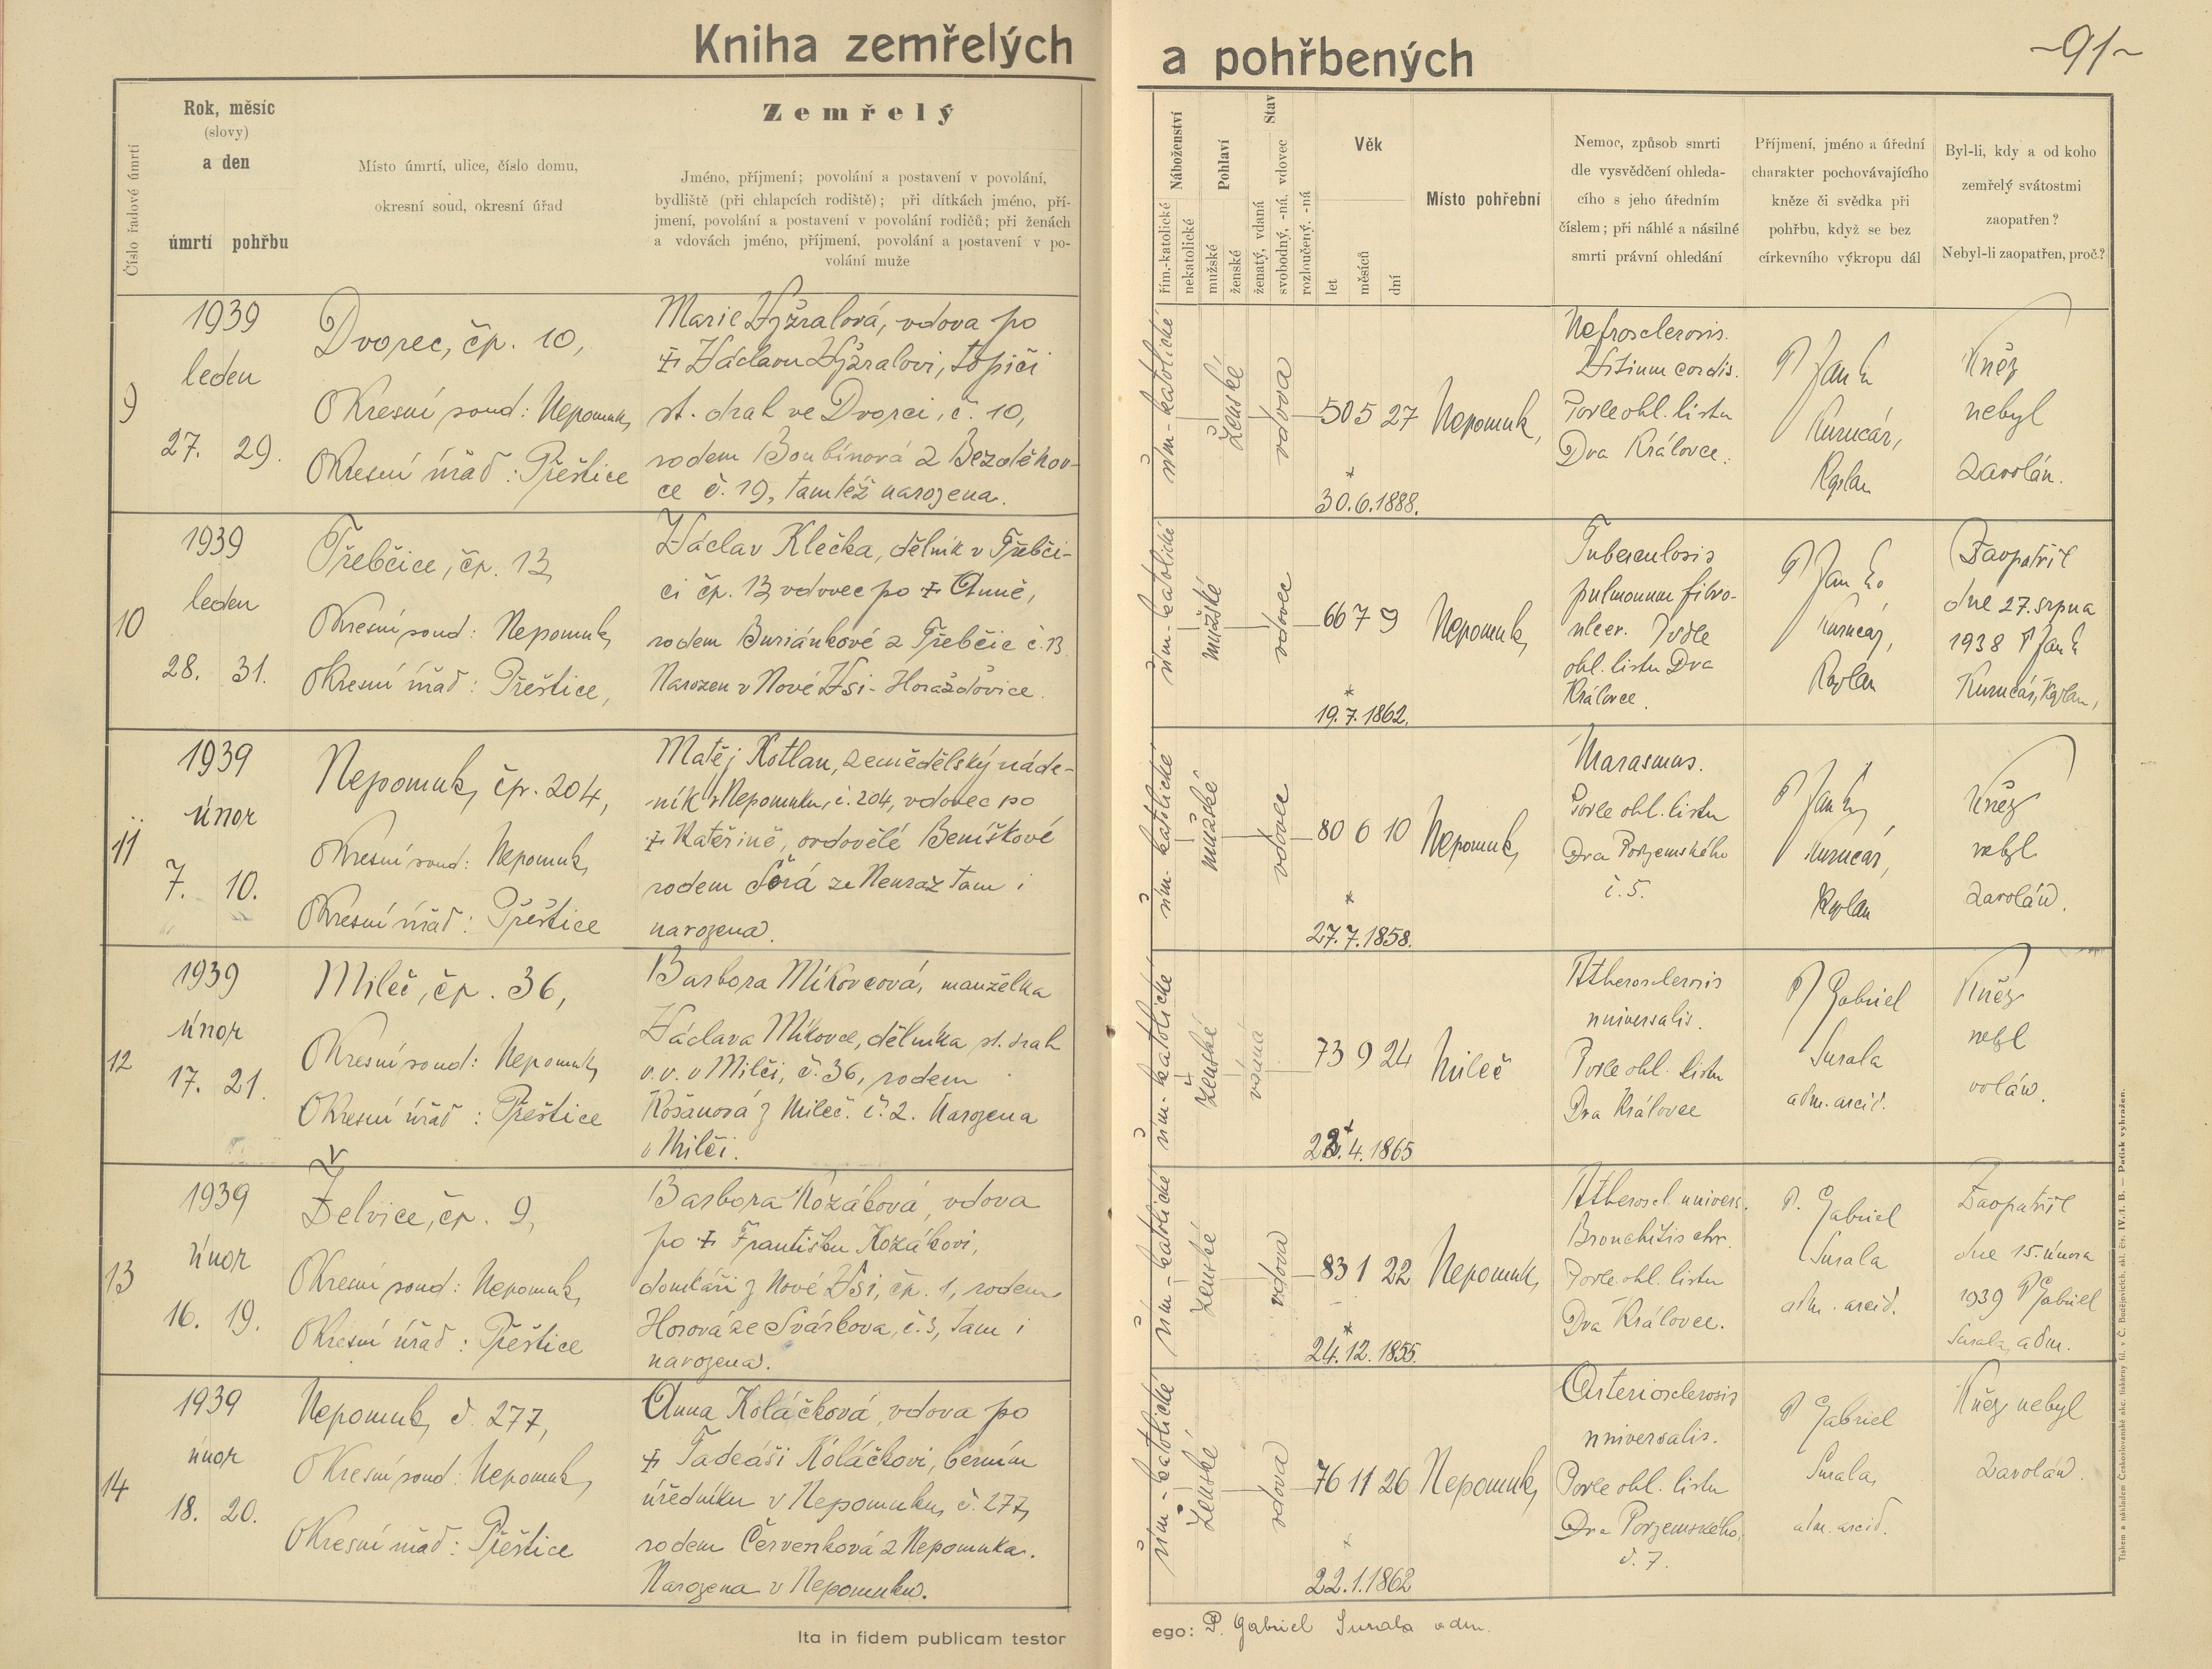 Kniha zemřelých a pohřbených
~91~
Číslo řadové úmrtí
Rok, měsíc
(slovy)
a den
úmrtí pohřbu
Místo úmrtí, ulice, číslo domu,
okresní soud, okresní úřad
Zemřelý
Jméno, příjmení; povolání a postavení v povolání,
bydliště (při chlapcích rodiště); při dítkách jméno, pří-
jmení, povolání a postavení v povolání rodičů; při ženách
a vdovách jméno, příjmení, povolání a postavení v po-
volání muže
Náboženství
řím.-katolické
nekatolické
Pohlaví
mužské
ženské
Stav
ženatý, vdaná
svobodný, -ná, vdovec
rozloučený, -ná
Věk
let
měsíců
dní
Místo pohřební
Nemoc, způsob smrti
dle vysvědčení ohleda-
cího s jeho úředním
číslem; při náhlé a násilné
smrti právní ohledání
Příjmení, jméno a úřední
charakter pochovávajícího
kněze či svědka při
pohřbu, když se bez
církevního výkropu dál
Byl-li, kdy a od koho
zemřelý svátostmi
zaopatřen?
Nebyl-li zaopatřen, proč?
9
1939
leden
27. 29.
Dvorec, čp. 10,
Okresní soud: Nepomuk,
Okresní úřad: Přeštice
Marie Vyžralová, vdova po
‡ Václavu Vyžralovi, topiči
st. drah ve Dvorci, č. 10,
rodem Boubínová z Bezděkov-
ce č. 19, tamtéž narozena.
řím-katolické
ženské
vdova
50 5 27
*
30.6.1888.
Nepomuk,
Nefrosclerosis.
Vitium cordis.
Podle ohl. listu
Dra Královce.
P Jan
Kurucár,
Kaplan
Kněz
nebyl
zavolán.
10
1939
leden
28. 31.
Třebčice, čp. 13,
Okresní soud: Nepomuk,
Okresní úřad: Přeštice,
Václav Klečka, dělník v Třebči-
ci čp. 13, vdovec po ‡ Anně,
rodem Buriánkové z Třebčic č. 13.
Narozen v Nové Vsi - Horažďovice.
řím-katolické
mužské
vdovec
66 7 9
*
19.7.1862.
Nepomuk,
Tuberculosis
pulmonum fibro-
ulcer. Podle
ohl. listu Dra
Královce.
P Jan
Kurucár,
Kaplan
Zaopatřil
dne 27. srpna
1938 P Jan
Kurucár, Kaplan,
11
1939
únor
7. 10.
Nepomuk, čp. 204,
Okresní soud: Nepomuk,
Okresní úřad: Přeštice
Matěj Kotlan, zemědělský náde-
ník v Nepomuku, č. 204, vdovec po
‡ Kateřině, ovdovělé Beníškové
rodem ze Neuraz tam i
narozena.
řím-katolické
mužské
vdovec
80 6 10
*
27.7.1858.
Nepomuk,
Marasmus.
Podle ohl. listu
Dra Podzemského
č. 5.
P Jan
Kurucár,
Kaplan
Kněz
nebyl
zavolán.
12
1939
únor
17. 21.
Mileč, čp. 36,
Okresní soud: Nepomuk,
Okresní úřad: Přeštice
Barbora Míkovcová, manželka
Václava Míkovce, dělníka st. drah
v.v. v Milči, č. 36, rodem
z Mileč. č. 2. Narozena
v Milči.
řím-katolické
ženské
vdaná
73 9 24
*
23.4.1865
Mileč
Atherosclerosis
universalis.
Podle ohl. listu
Dra Královce
P Gabriel
Surala
adm. arcid.
Kněz
nebyl
volán.
13
1939
únor
16. 19.
Želvice, čp. 9,
Okresní soud: Nepomuk,
Okresní úřad: Přeštice
Barbora Kozáková, vdova
po ‡ Františku Kozákovi,
domkáři z Nové Vsi, čp. 1, rodem
Horová ze Svárkova, č. 3, tam i
narozena.
řím-katolické
ženské
vdova
83 1 22
*
24.12.1855.
Nepomuk,
Atheroscl. univers.
Bronchitis chr.
Podle ohl. listu
Dra Královce.
P. Gabriel
Surala
adm. arcid.
Zaopatřil
dne 15. února
1939 P Gabriel
Surala, adm.
14
1939
únor
18. 20.
Nepomuk, č. 277,
Okresní soud: Nepomuk,
Okresní úřad: Přeštice
Anna Koláčková, vdova po
‡ Tadeáši Koláčkovi, berním
úředníku v Nepomuku, č. 277,
rodem Červenková z Nepomuka.
Narozena v Nepomuku.
řím-katolické
ženské
vdova
76 11 26
*
22.1.1862
Nepomuk,
Arteriosclerosis
universalis.
Podle ohl. listu
Dra Podzemského,
č. 7.
P Gabriel
Surala,
adm. arcid.
Kněz nebyl
zavolán.
Ita in fidem publicam testor
ego: P. Gabriel Surala adm.
Tiskem a nákladem Českoslovanské akc. tiskárny fil. v Č. Budějovicích, skl. čís. IV./1. B. — Patisk vyhražen.